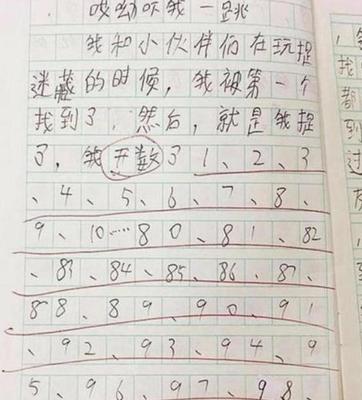 哎呦吓我一跳
我和小伙伴们在玩捉
迷藏的时候，我被第一个
找到了，然后，就是我捉
了，我开数了1、2、3
、4、5、6、7、8、
9、10……80、81、82
、83、84、85、86、87、
88、89、90、91
、92、93、94、9
5、96、97、98、